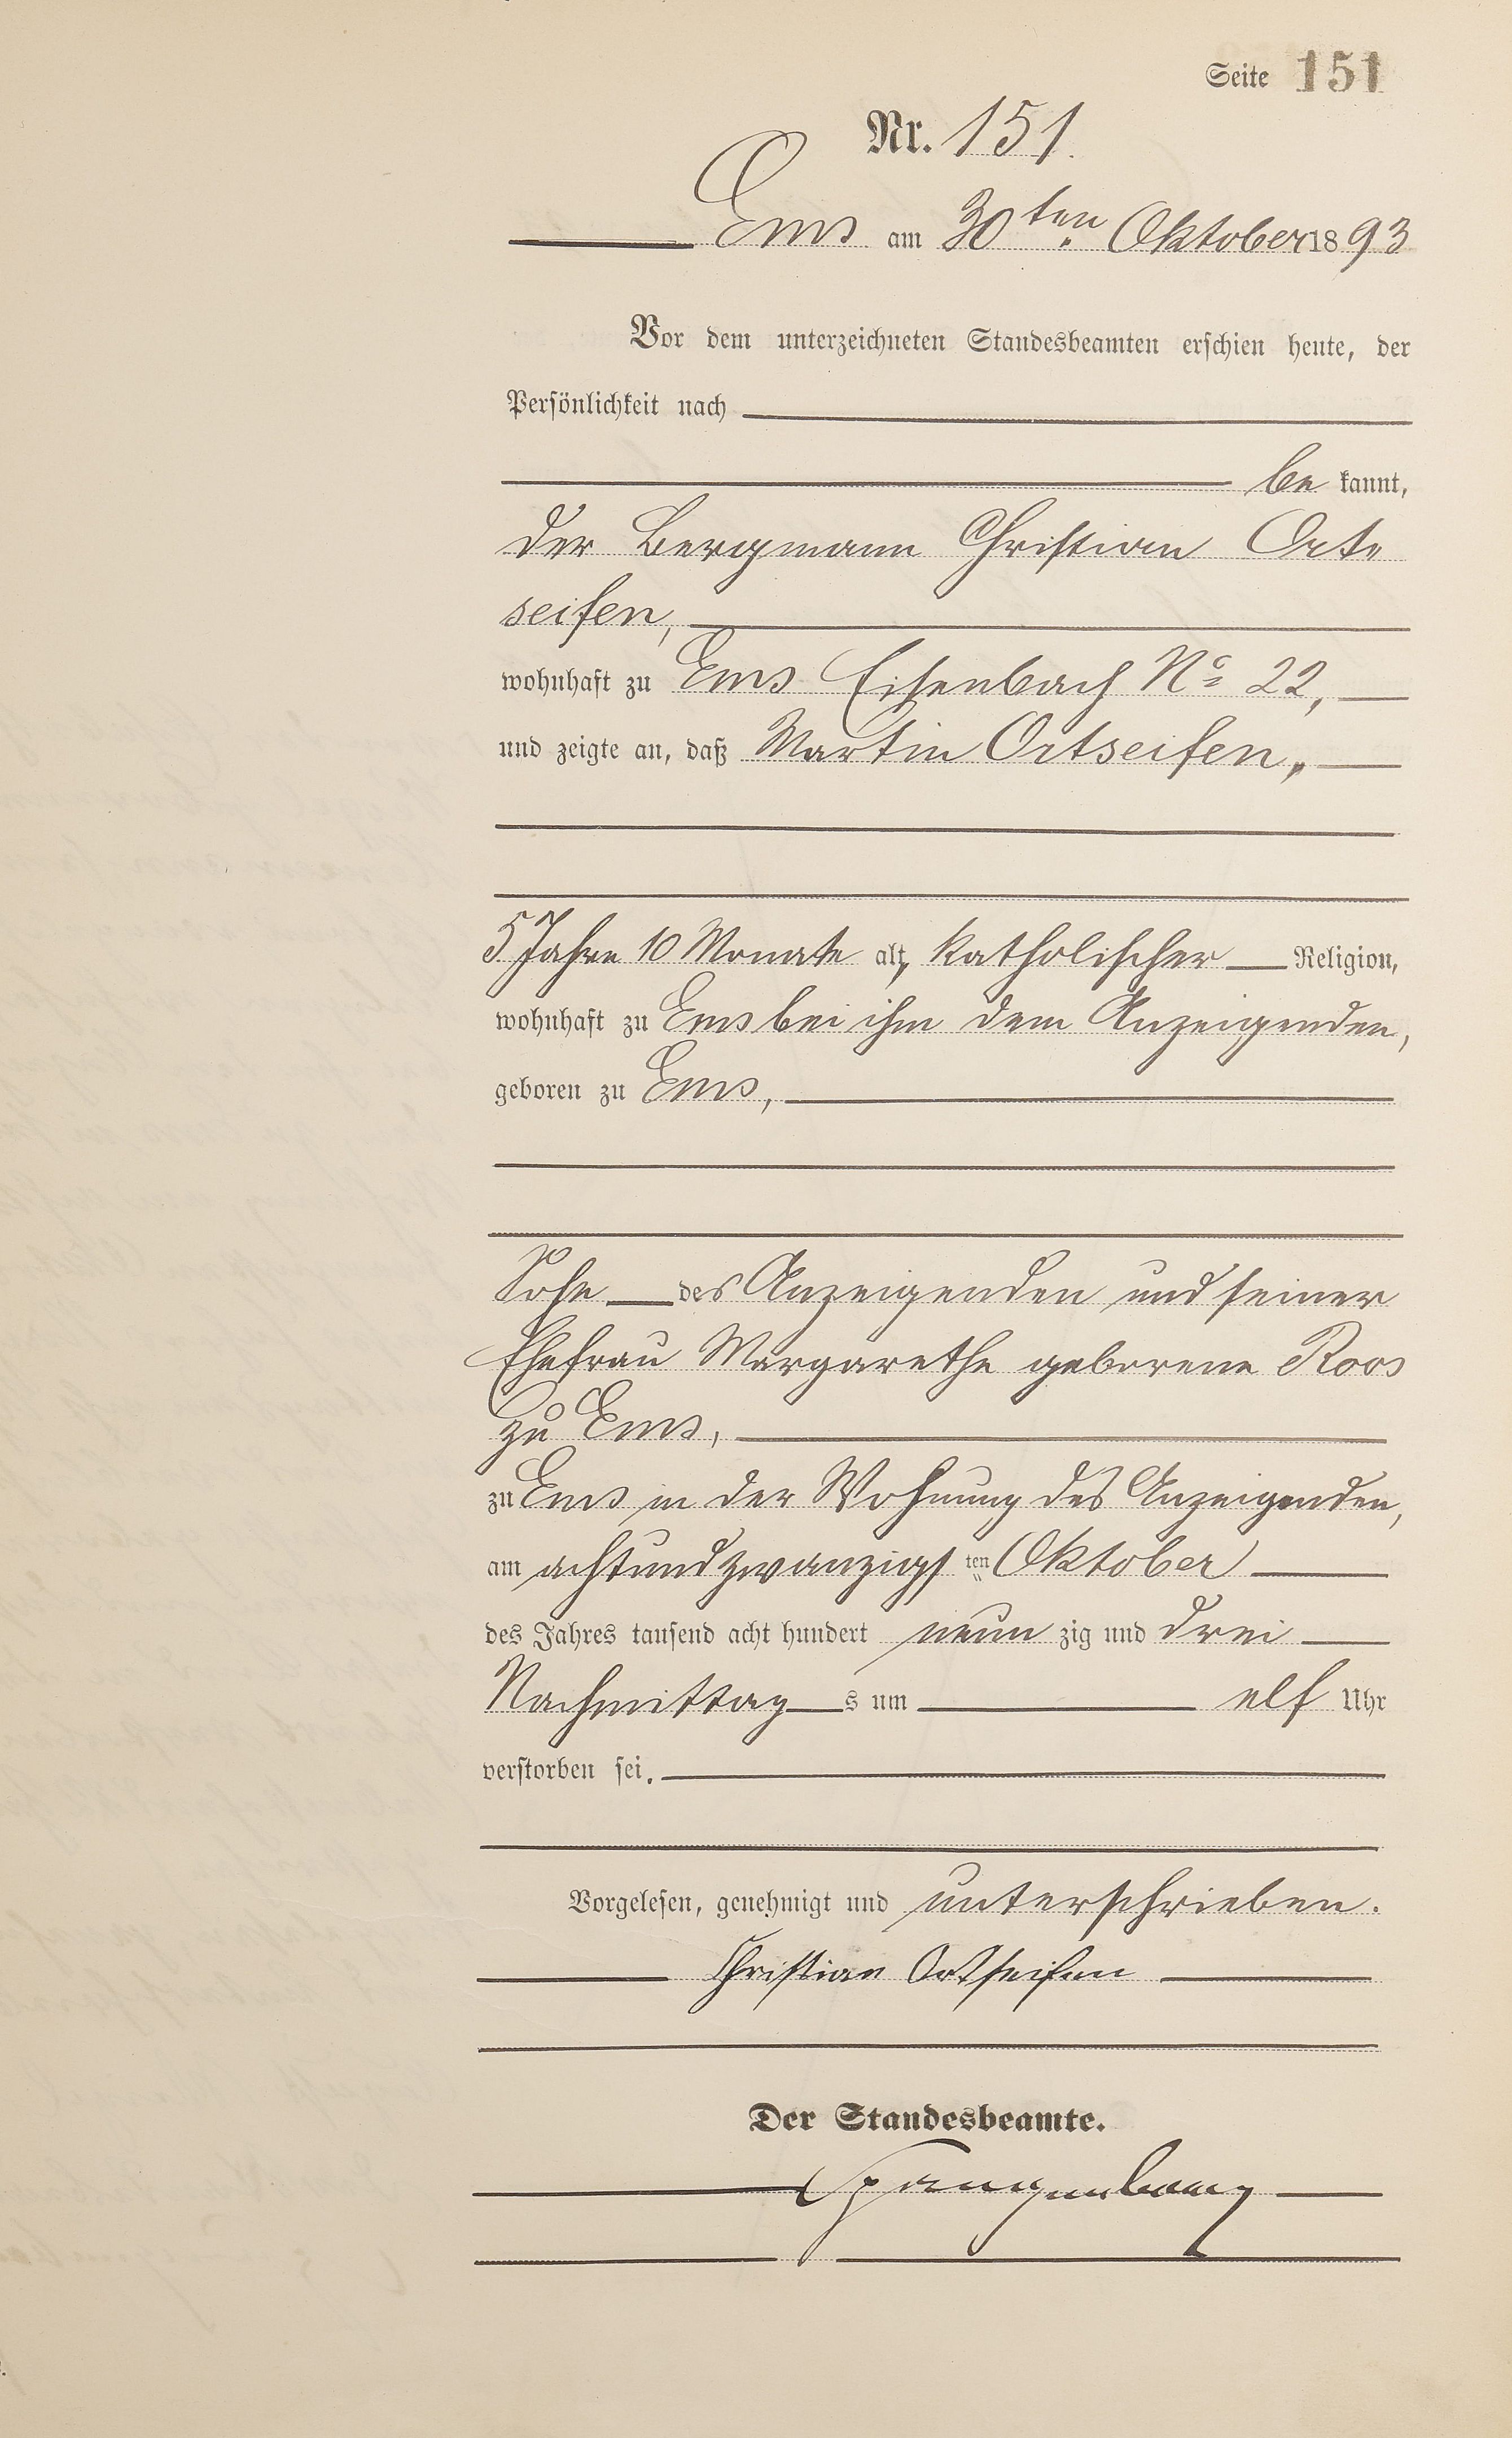 Seite 151
Nr. 151.
Ems am 30ten Oktober 1893
Vor dem unterzeichneten Standesbeamten erschien heute, der
Persönlichkeit nach
be kannt,
der Bergmann Christian Orts
seifen,
wohnhaft zu Ems Eisenbach No 22,
und zeigte an, daß Martin Ortseifen,
5 Jahre 10 Monate alt, katholischer Religion,
wohnhaft zu Ems bei ihm dem Anzeigenden,
geboren zu Ems,
Sohn des Anzeigenden und seiner
Ehefrau Margarethe geborene Roos
zu Ems,
zu Ems in der Wohnung des Anzeigenden,
am achtundzwanzigs ten Oktober
des Jahres tausend acht hundert neun zig und drei
Nachmittag s um elf Uhr
verstorben sei.
Vorgelesen, genehmigt und unterschrieben.
Christian Ortseifen
Der Standesbeamte.
Spangenberg